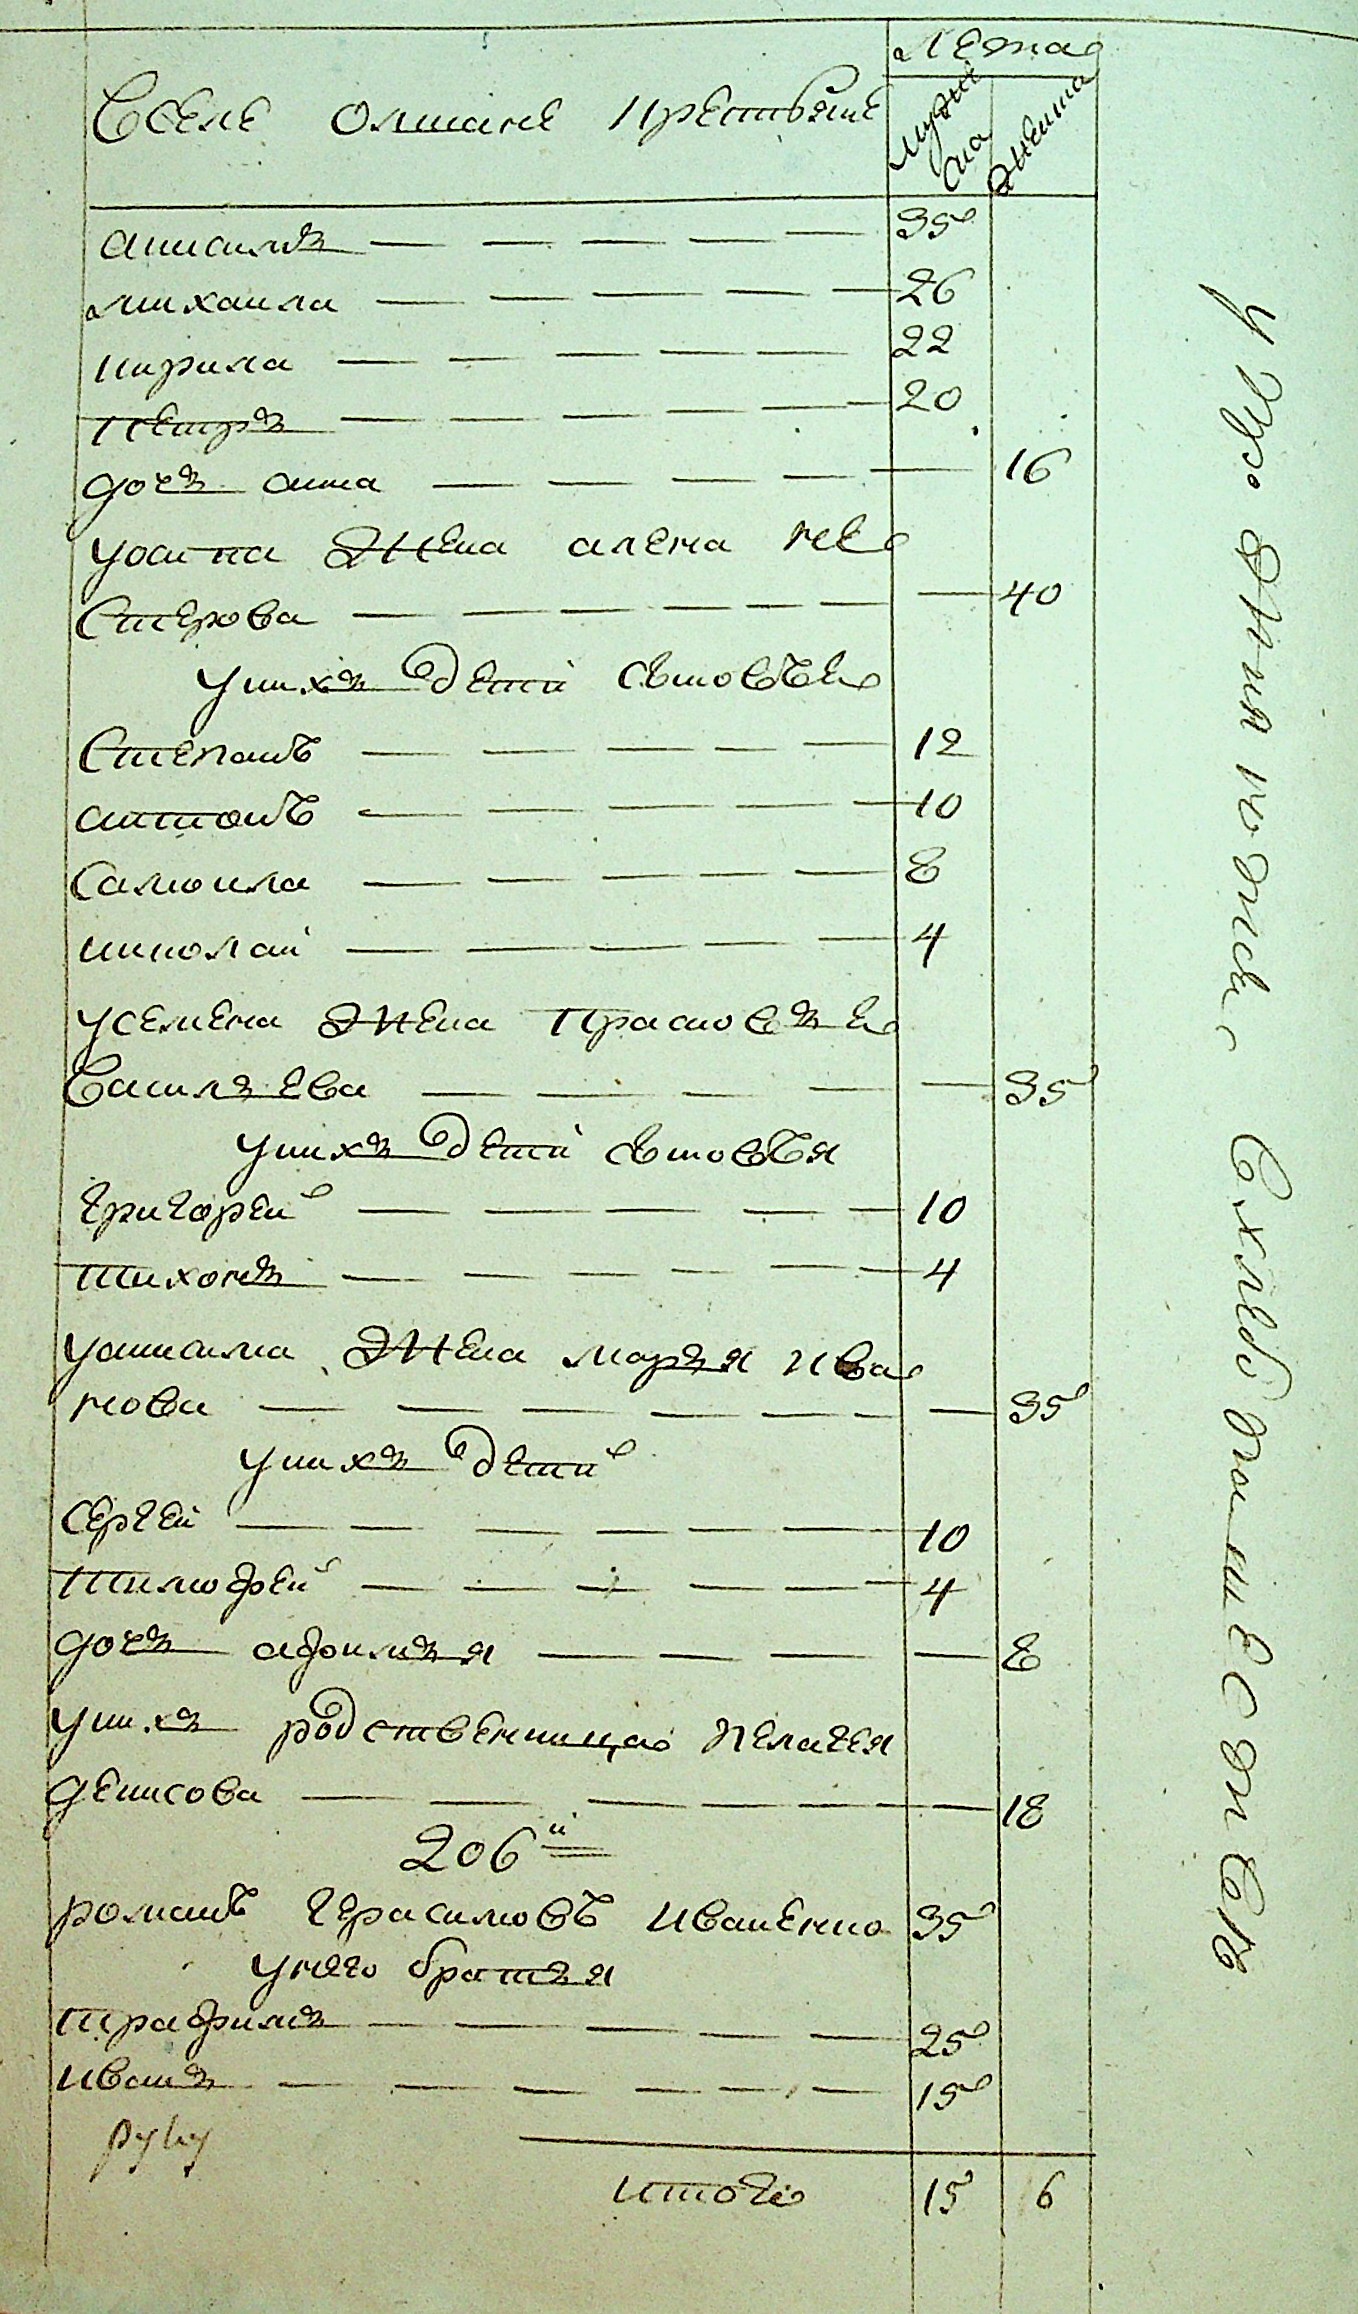 лета
Вселе олшане крестьяне
мужеска
женска
анисимъ 35
михаила 26
кирила 22
петръ 20
дочь анна 16
уосипа жена алена не
стерова 40
унихъ дети сыновье
Степанъ 12
антонъ 10
Самоила 8
николаи 4
усемена жена прасковье
Василь ева 35
унихъ дети сыновья
григореи 10
тихонъ 4
уанисима жена марья ива
нова 35
унихъ дети
сергеи 10
тимофеи 4
дочь афимья 8
унихъ родственница пелагея
денисова 18
206й
романъ герасимовъ иваненко 35
унего братья
трафимъ 25
иванъ 15
руку
итого 15 6